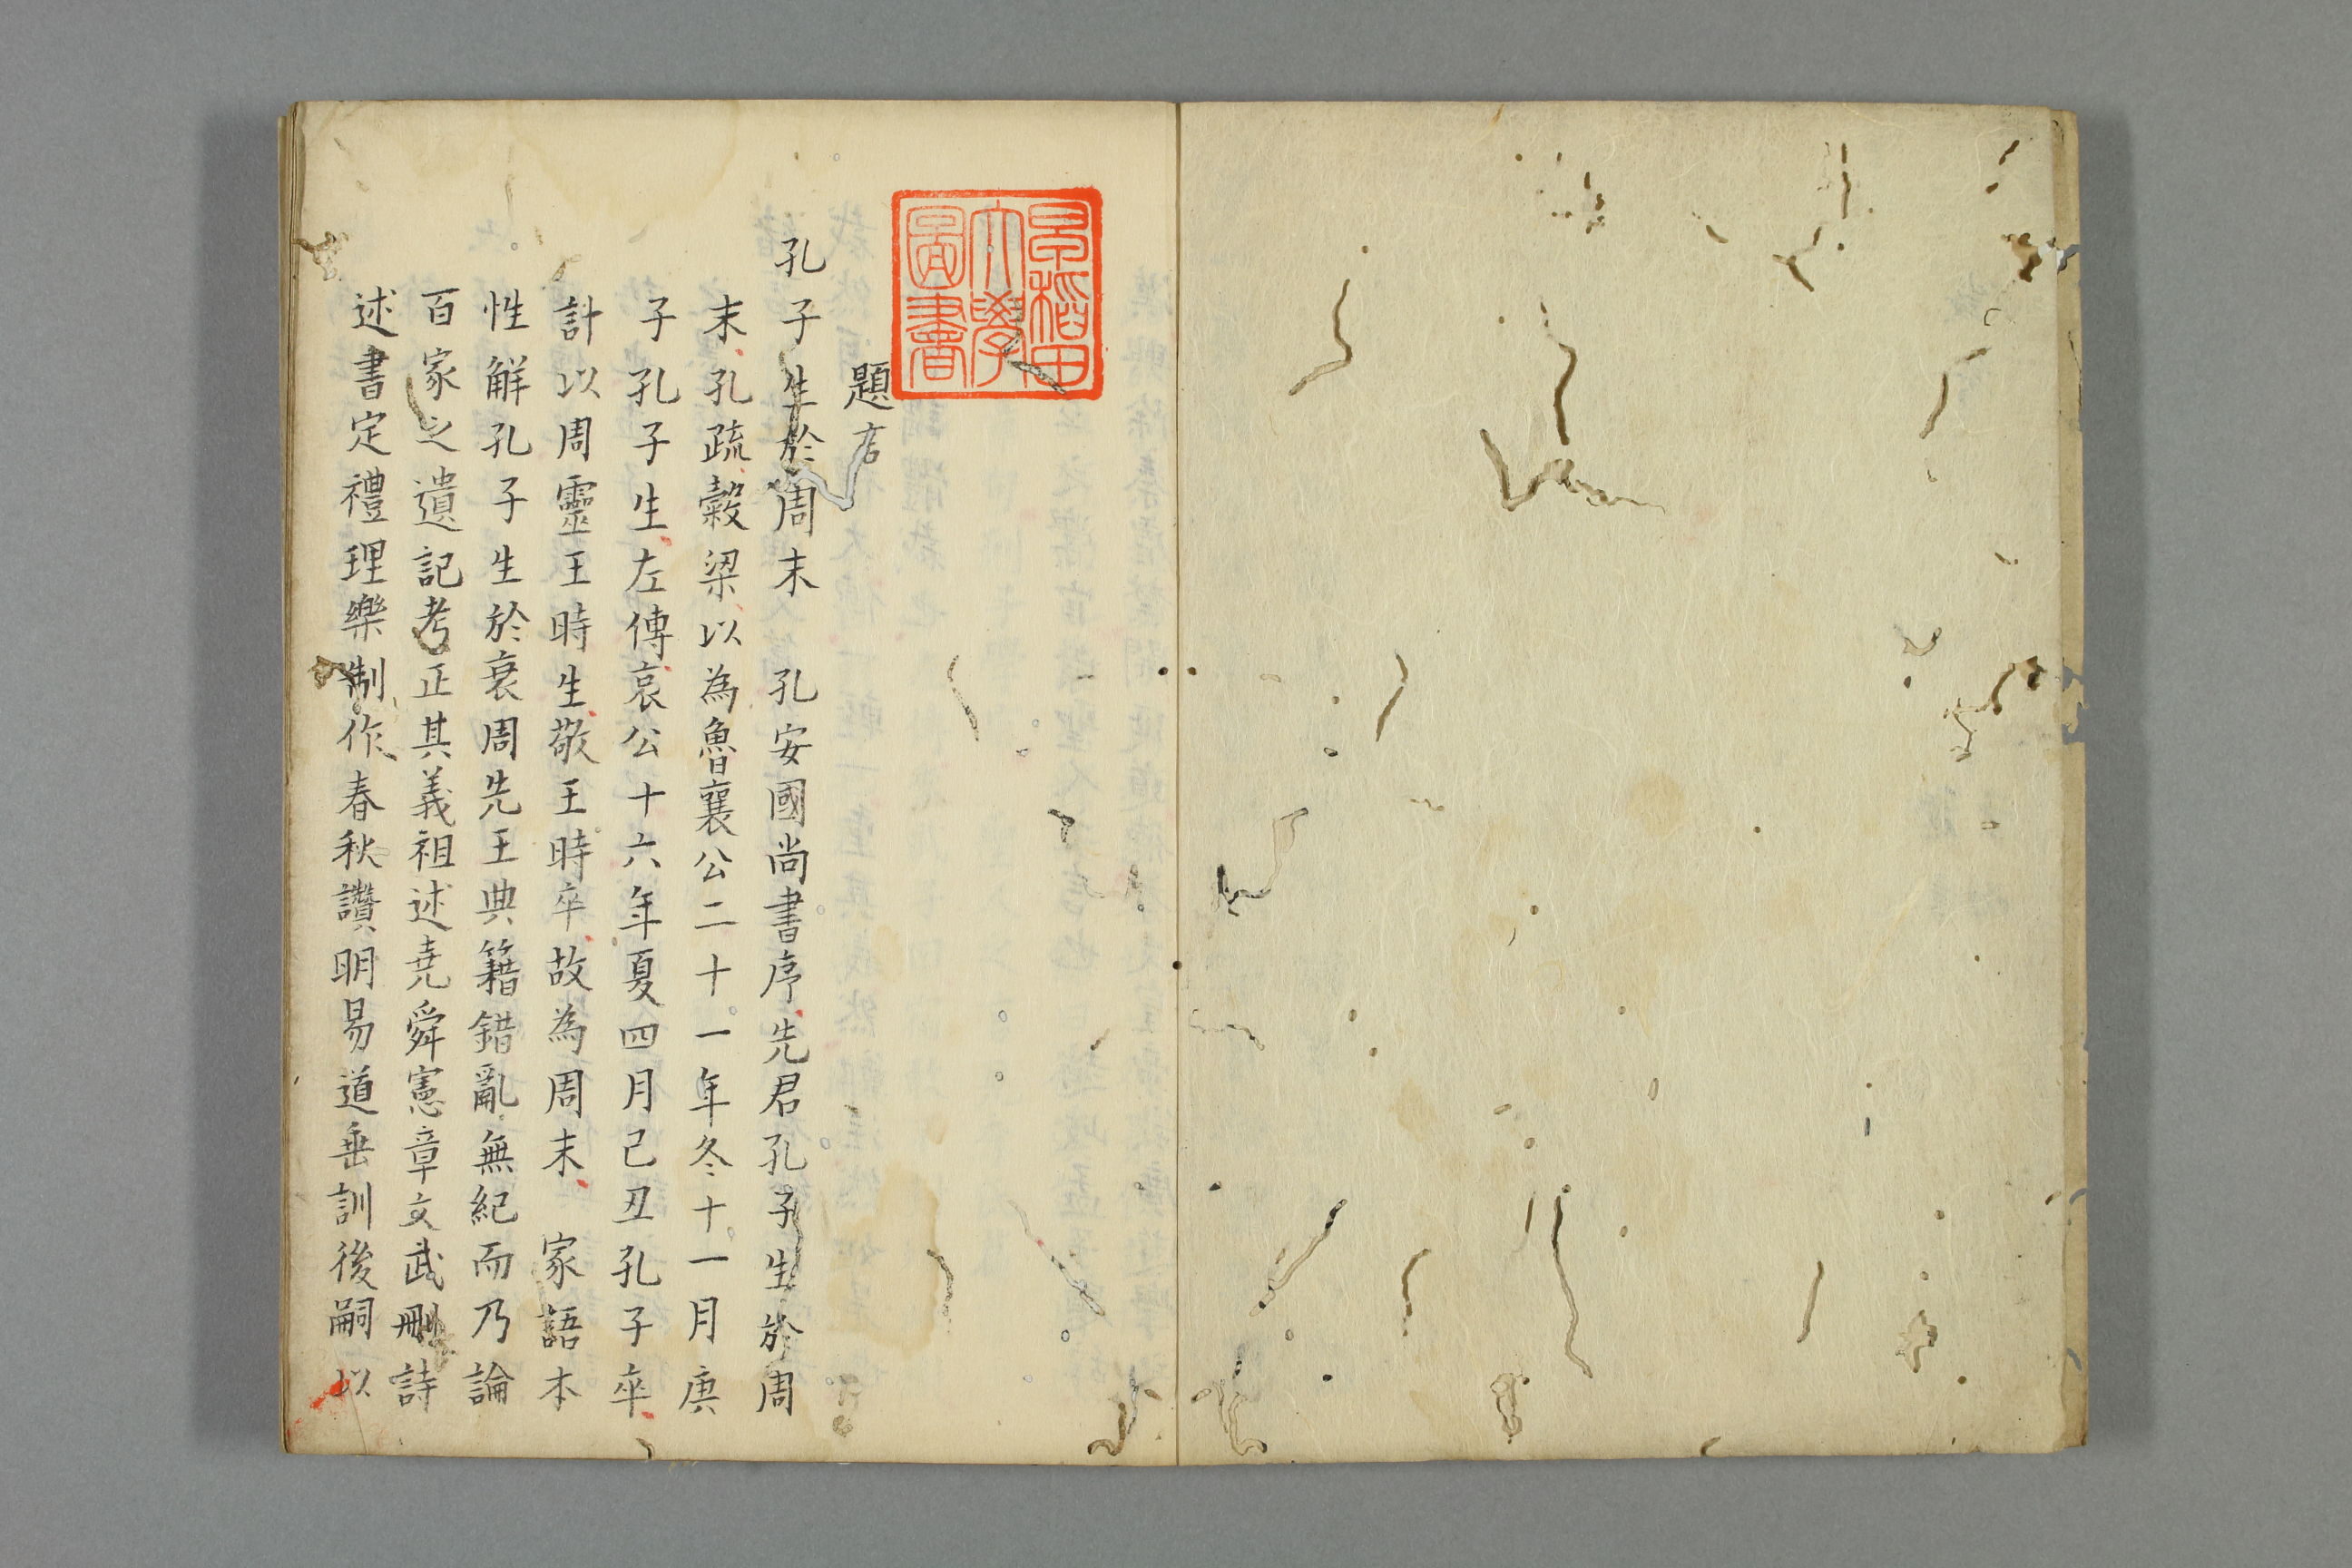 早稲田
大學
圖書
題言
孔子生於周末 孔安國尚書序先君孔子生於周
末孔疏穀梁以為魯襄公二十一年冬十一月庚
子孔子生左傳哀公十六年夏四月己丑孔子卒
計以周靈王時生敬王時卒故為周末 家語本
性解孔子生於衰周先王典籍錯亂無紀而乃論
百家之遺記考正其義祖述堯舜憲章文武刪詩
述書定禮理樂制作春秋讚明易道垂訓後嗣以